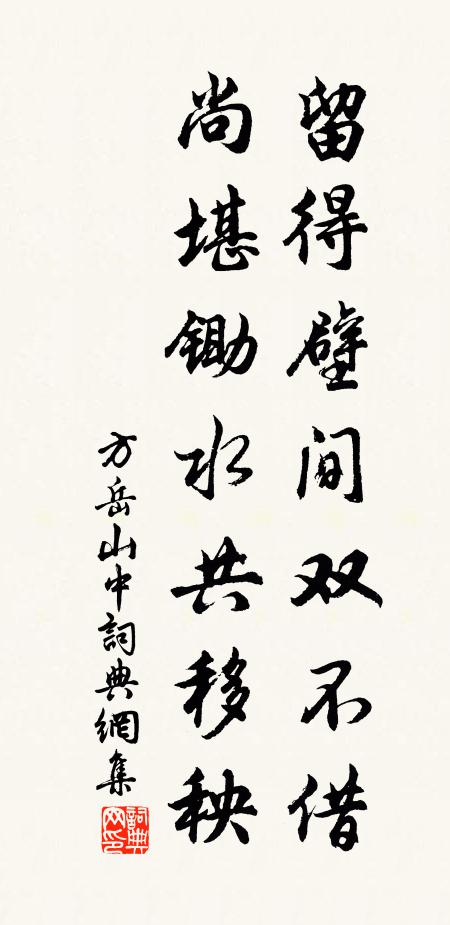 留得壁间双不借
尚堪锄水共移秧
方岳山中詞典網集
詞典網印